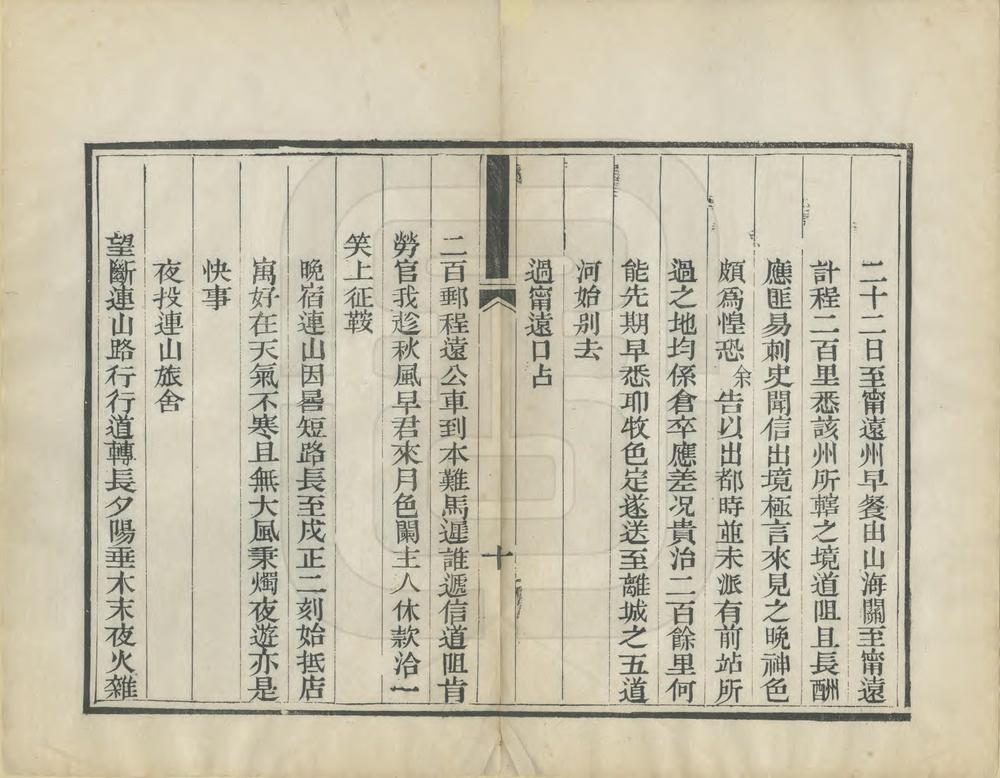 二十二日至甯遠州早餐由山海關至甯遠
計程二百里悉該州所轄之境道阻且長酬
應匪易刺史聞信出境極言來見之晚神色
頗爲惶恐余告以出都時並未派有前站所
過之地均係倉卒應差况貴治二百餘里何
能先期早悉耶牧色定遂送至離城之五道
河始别去
過甯遠口占
十
二百郵程遠公車到本難馬遲誰遞信道阻肯
勞官我趁秋風早君來月色闌主人休款洽一
笑上征鞍
晚宿連山因晷短路長至戌正二刻始抵店
寓好在天氣不寒且無大風秉燭夜遊亦是
快事
夜投連山旅舍
望斷連山路行行道轉長夕陽垂木末夜火雜